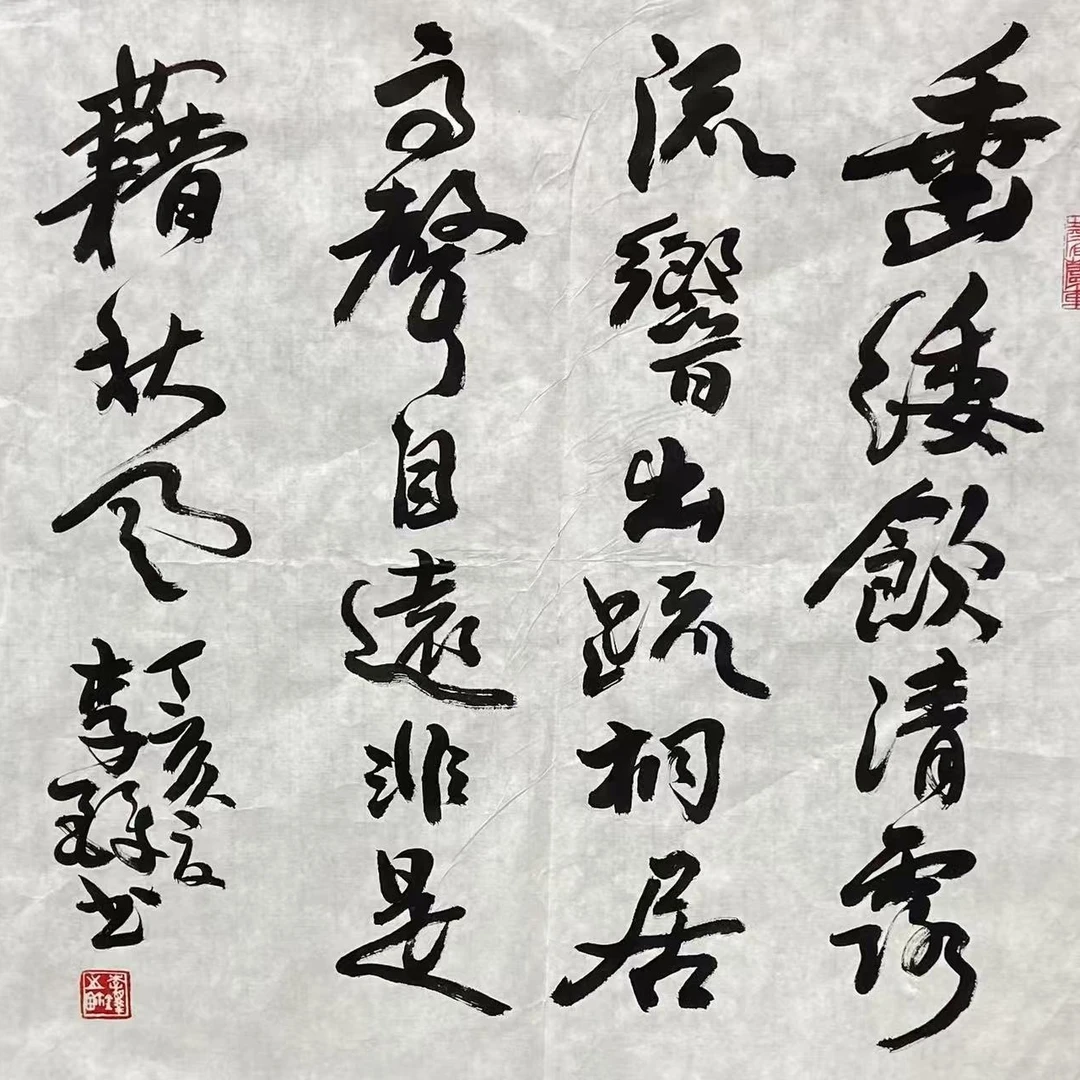 垂緌飲清露
流響出疏桐居
高聲自遠非是
藉秋風
丁亥
李鐸书